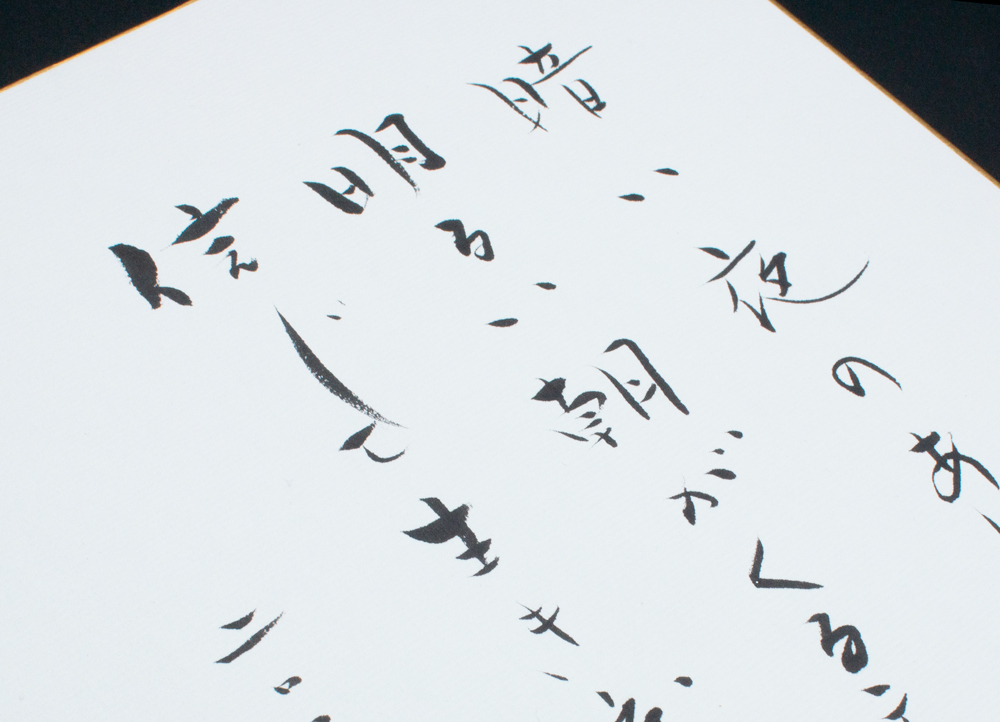 暗い夜のあ
明るい朝がくる
信じて生き